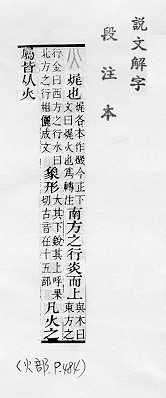 説文解字
段注本
火 𤈦也𤈦各本作燬今正下文曰𤈦火也爲轉注南方之行炎而上與木曰東方之
行金曰西方之行水曰北方之行相儷成文象形大其下銳其上呼果切古音在十五部凡火之
屬皆从火
(火部. P.484)